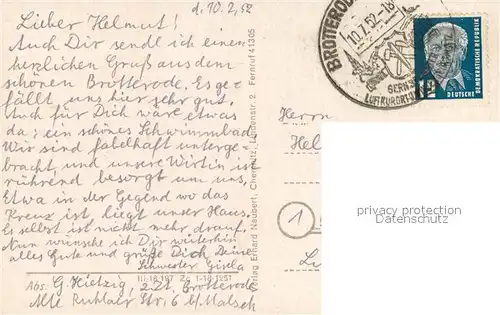 d. 10.2.52
Lieber Helmut!
Auch Dir sendl ich einen
herzlichen Gruß aus dem
schönen Brotterode. Es ge-
fällt uns hier sehr gut.
Auch für Dich wäre etwas
da: ein schönes Schwimmbad.
Wir sind fabelhaft unterge-
bracht, und unsere Wirtin ist
rührend besorgt um uns.
Etwa in der Gegend wo das
Kreuz ist, liegt unser Haus.
Es selbst ist nicht mehr drauf.
Nun wünsche ich Dir weiterhin
alles Gute und grüße Dich Deine
Schwester Gisela
Abs. G. Hietzig, z.Zt. Brotterode
Alte Ruhlaer Str. 6 b/ Malsch
III-18-197
Verlag Erhard Neubert, Chemnitz, Lindenstr. 2 Fernruf 41305
BROTTERODE
10.2.52.-18
LUFTKURORT
12
DEUTSCHE
DEMOKRATISCHE REPUBLIK
Herrn
Hel
1
privacy protection
www.oldthing.de